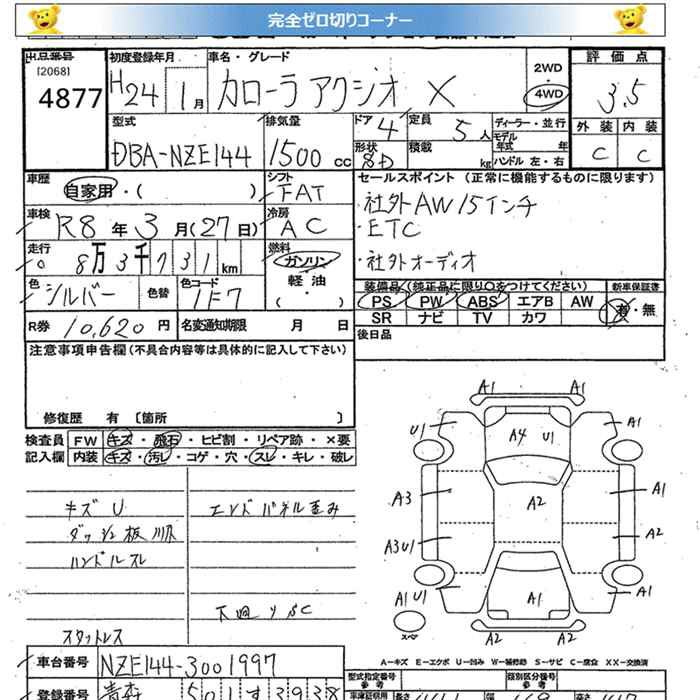 完全ゼロ切りコーナー
出品番号 初度登録年月 車名・グレード 評価点
[2068]
4877 H24 1月 カローラアクシオ X 2WD・4WD 3.5
型式 排気量 ドア 4 定員 5人 ディーラー・並行 外装 内装
DBA-NZE144 1500cc 形状 SD 積載 kg モデル年式 年 ハンドル 左・右 C C
車歴 シフト セールスポイント(正常に機能するものに限ります)
自家用・( ) FAT ・社外AW15インチ
車検 冷房 ・ETC
R8年3月(27日) AC
走行 燃料 ・社外オーディオ
8万3千731km ガソリン・軽油・( )
色 シルバー 色替 色コード 1F7 装備品(純正品に限り○をつけてください) 新車保証書
PS PW ABS エアB AW 有・無
R券 10,620円 名変通知期限 月 日 SR ナビ TV カワ
後日品
注意事項申告欄(不具合内容等は具体的に記入して下さい)
修復歴 有 [箇所 ]
検査員 FW キズ・飛石・ヒビ割・リペア跡・×要
記入欄 内装 キズ・汚レ・コゲ・穴・スレ・キレ・破レ
A1 A1
U1 A4 U1 A1
キズ U エンドパネル歪み A3 A2 A1
ハンドルスレ A3U1 A2
A1 U1 A1 A1
スペア
スタットレス A2 A2
A－キズ E－エクボ U－凹み W－補修跡 S－サビ C－腐食 XX－交換済
車台番号 NZE144-3001997 型式指定番号 類別区分番号
登録番号 青森 501す3938